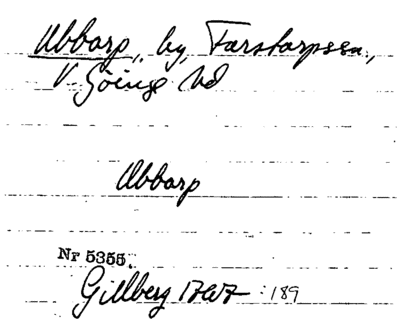 Ubbarp, by, Farstorpssn.,
V Göinge hd
Ubbarp
Nr 5355.
Gillberg 1767 :189